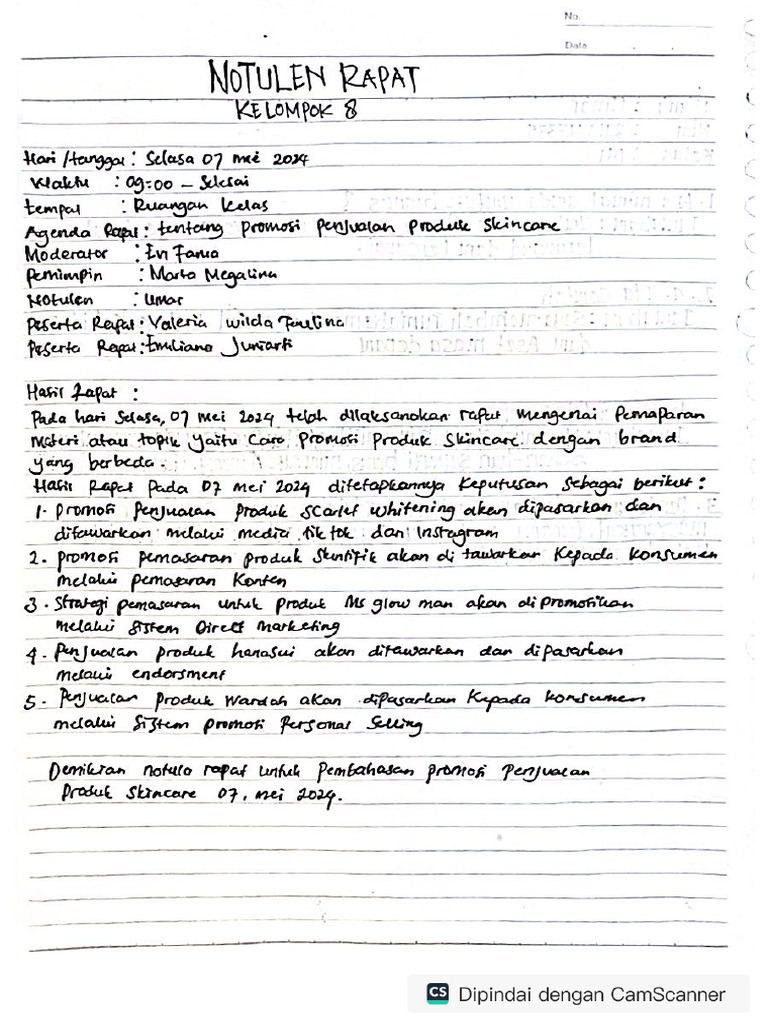 No.
Date
NOTULEN RAPAT
KELOMPOK 8
Hari/tanggal : Selasa 07 mei 2024
Waktu : 09:00 - Selesai
tempat : Ruangan kelas
Agenda Rapat : tentang promosi penjualan produk skincare
Moderator : Evi Fania
Pemimpin : Marta Megalina
Notulen : Umar
Peserta Rapat : Valeria Wilda Paulina
Peserta Rapat : Emiliana Juniarti
Hasil Rapat :
Pada hari Selasa, 07 mei 2024 telah dilaksanakan rapat mengenai Pemaparan
materi atau topik yaitu Cara promosi Produk Skincare dengan brand
yang berbeda.
Hasil Rapat Pada 07 mei 2024 ditetapkannya keputusan sebagai berikut :
1. promosi penjualan produk scarlet whitening akan dipasarkan dan
ditawarkan melalui media tik tok dan Instagram
2. promosi pemasaran produk Skintifik akan di tawarkan kepada konsumen
melalui pemasaran konten
3. Strategi pemasaran untuk produk Ms glow man akan di promosikan
melalui sistem Direct marketing
4. Penjualan produk hanasui akan ditawarkan dan dipasarkan
melalui endorsment
5. Penjualan produk wardah akan dipasarkan kepada konsumen
melalui Sistem promosi Personal Selling
Demikian notula rapat untuk pembahasan promosi penjualan
Produk Skincare 07, mei 2024.
CS Dipindai dengan CamScanner